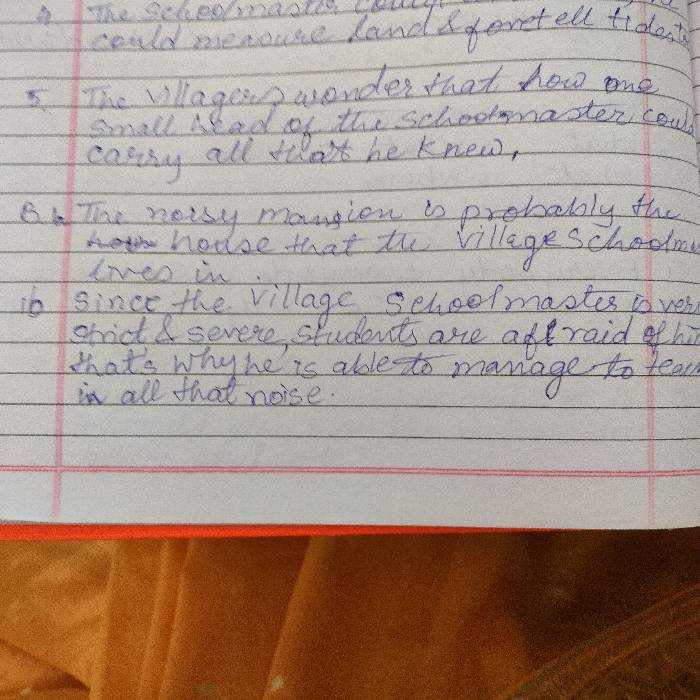 4 The schoolmaster could
could measure land & foretell tides
5. The villagers wonder that how one
small head of the schoolmaster could
carry all that he knew,
B. The noisy mansion is probably the
house that the village schoolma
lives in.
ib Since the village schoolmaster is ver
strict & severe, students are afraid of hi
that's why he is able to manage to teac
in all that noise.